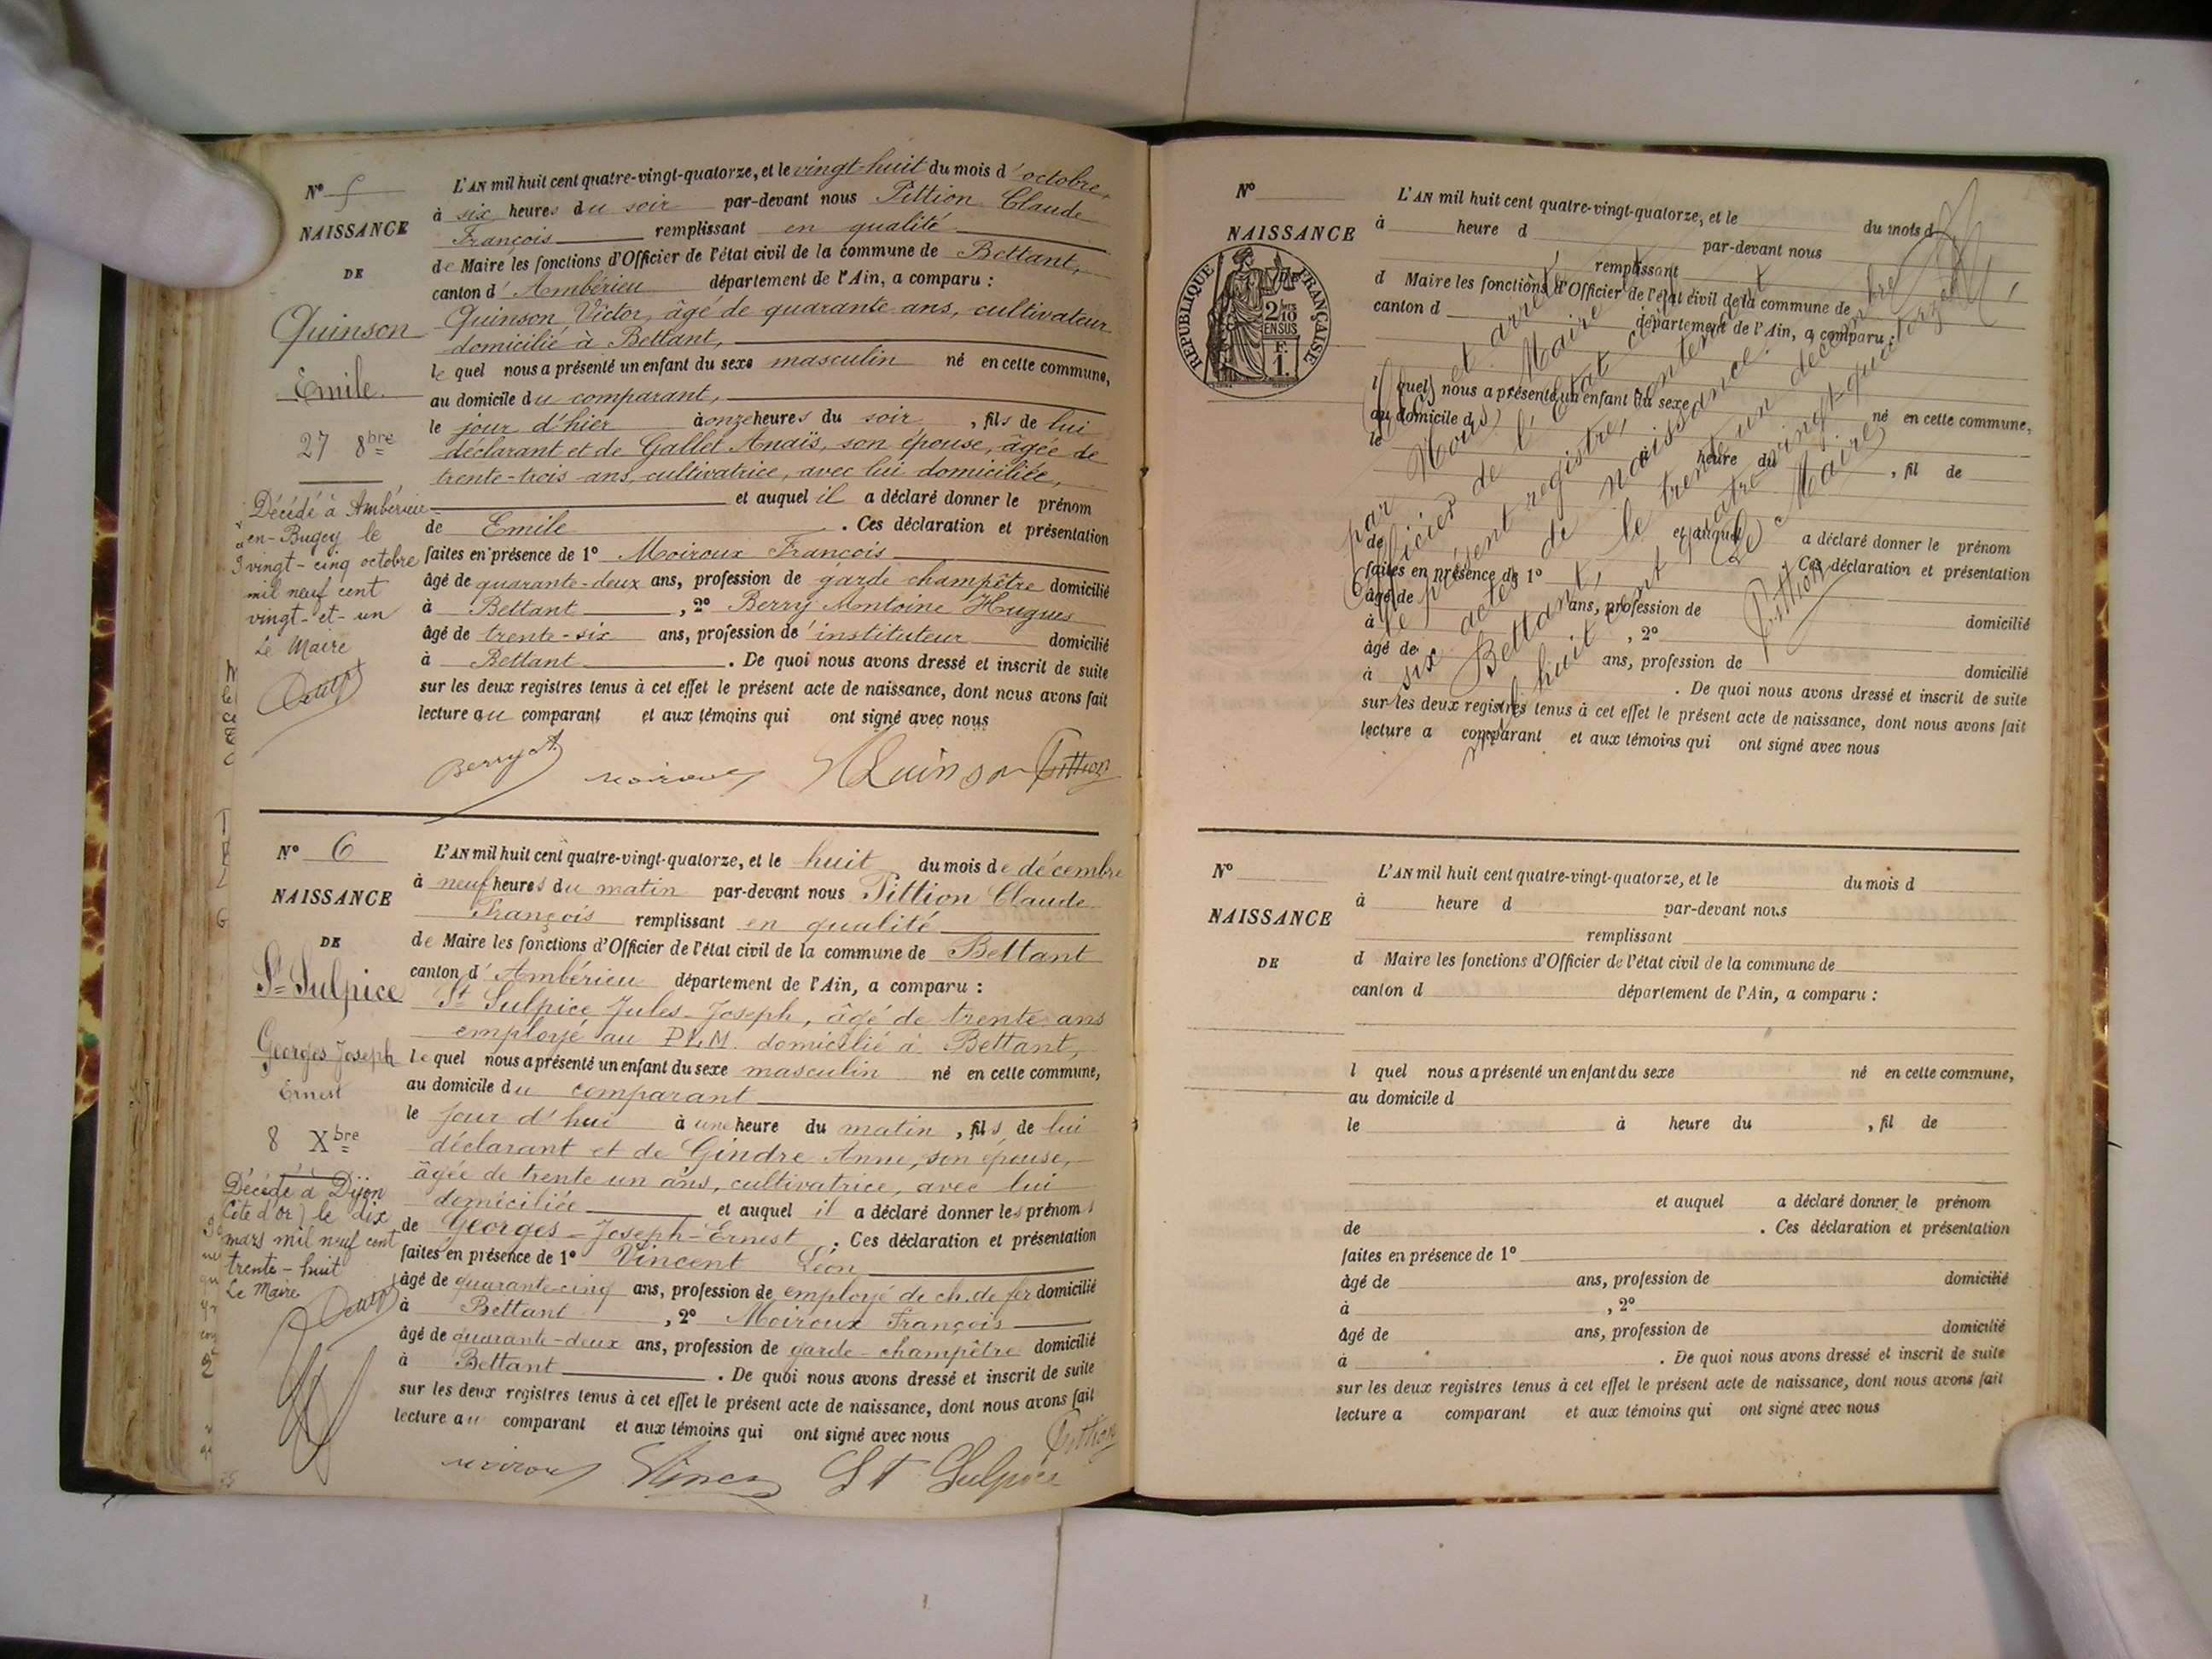 N° 5
NAISSANCE
DE
Quinson
Emile
27 8bre
Décédé à Ambérieu-
en-Bugey le
vingt-cinq octobre
mil neuf cent
vingt-et-un
Le Maire
L'AN mil huit cent quatre-vingt-quatorze, et le vingt-huit du mois d'octobre,
à six heures du soir par-devant nous Pittion Claude
François remplissant en qualité
de Maire les fonctions d'Officier de l'état civil de la commune de Bettant,
canton d'Ambérieu département de l'Ain, a comparu :
Quinson Victor, âgé de quarante ans, cultivateur
domicilié à Bettant,
lequel nous a présenté un enfant du sexe masculin né en cette commune,
au domicile du comparant,
le jour d'hier à onze heures du soir, fils de lui
déclarant et de Gallet Anaïs, son épouse, âgée de
trente-trois ans, cultivatrice, avec lui domiciliée,
et auquel il a déclaré donner le prénom
de Emile. Ces déclaration et présentation
faites en présence de 1° Moiroux François
âgé de quarante-deux ans, profession de garde champêtre domicilié
à Bettant, 2° Berry Antoine Hugues
âgé de trente-six ans, profession d'instituteur domicilié
à Bettant. De quoi nous avons dressé et inscrit de suite
sur les deux registres tenus à cet effet le présent acte de naissance, dont nous avons fait
lecture au comparant et aux témoins qui ont signé avec nous
Berry A. Moiroux Quinson Pittion
N° 6
NAISSANCE
DE
St Sulpice
Georges Joseph
Ernest
8 Xbre
Décédé à Dijon
(Côte d'Or) le dix
mars mil neuf cent
trente-huit
Le Maire
L'AN mil huit cent quatre-vingt-quatorze, et le huit du mois de décembre
à neuf heures du matin par-devant nous Pittion Claude
François remplissant en qualité
de Maire les fonctions d'Officier de l'état civil de la commune de Bettant
canton d'Ambérieu département de l'Ain, a comparu :
St Sulpice Jules-Joseph, âgé de trente ans
employé au P.L.M. domicilié à Bettant,
lequel nous a présenté un enfant du sexe masculin né en cette commune,
au domicile du comparant
le jour d'hui à une heure du matin, fils de lui
déclarant et de Gindre Anne, son épouse,
âgée de trente un ans, cultivatrice, avec lui
domiciliée et auquel il a déclaré donner les prénoms
de Georges-Joseph-Ernest. Ces déclaration et présentation
faites en présence de 1° Vincent Léon
âgé de quarante-cinq ans, profession de employé de ch. de fer domicilié
à Bettant, 2° Moiroux François
âgé de quarante-deux ans, profession de garde-champêtre domicilié
à Bettant. De quoi nous avons dressé et inscrit de suite
sur les deux registres tenus à cet effet le présent acte de naissance, dont nous avons fait
lecture au comparant et aux témoins qui ont signé avec nous
Moiroux Vincent St Sulpice Pittion
N°
NAISSANCE
RÉPUBLIQUE FRANÇAISE
2/10 EN SUS
F.
1.
L'AN mil huit cent quatre-vingt-quatorze, et le du mois d
à heure d par-devant nous
remplissant
d Maire les fonctions d'Officier de l'état civil de la commune de
canton d département de l'Ain, a comparu :
l quel nous a présenté un enfant du sexe né en cette commune,
au domicile d
le à heure du , fil de
et auquel a déclaré donner le prénom
de . Ces déclaration et présentation
faites en présence de 1°
âgé de ans, profession de domicilié
à , 2°
âgé de ans, profession de domicilié
à . De quoi nous avons dressé et inscrit de suite
sur les deux registres tenus à cet effet le présent acte de naissance, dont nous avons fait
lecture a comparant et aux témoins qui ont signé avec nous
et arrêté
par Nous, Maire et
Officier de l'Etat civil
le présent registre, contenant
six actes de naissance.
Bettant, le trente un décembre
mil huit cent quatre-vingt-quatorze
Le Maire
Pittion
N°
NAISSANCE
DE
L'AN mil huit cent quatre-vingt-quatorze, et le du mois d
à heure d par-devant nous
remplissant
d Maire les fonctions d'Officier de l'état civil de la commune de
canton d département de l'Ain, a comparu :
l quel nous a présenté un enfant du sexe né en cette commune,
au domicile d
le à heure du , fil de
et auquel a déclaré donner le prénom
de . Ces déclaration et présentation
faites en présence de 1°
âgé de ans, profession de domicilié
à , 2°
âgé de ans, profession de domicilié
à . De quoi nous avons dressé et inscrit de suite
sur les deux registres tenus à cet effet le présent acte de naissance, dont nous avons fait
lecture a comparant et aux témoins qui ont signé avec nous